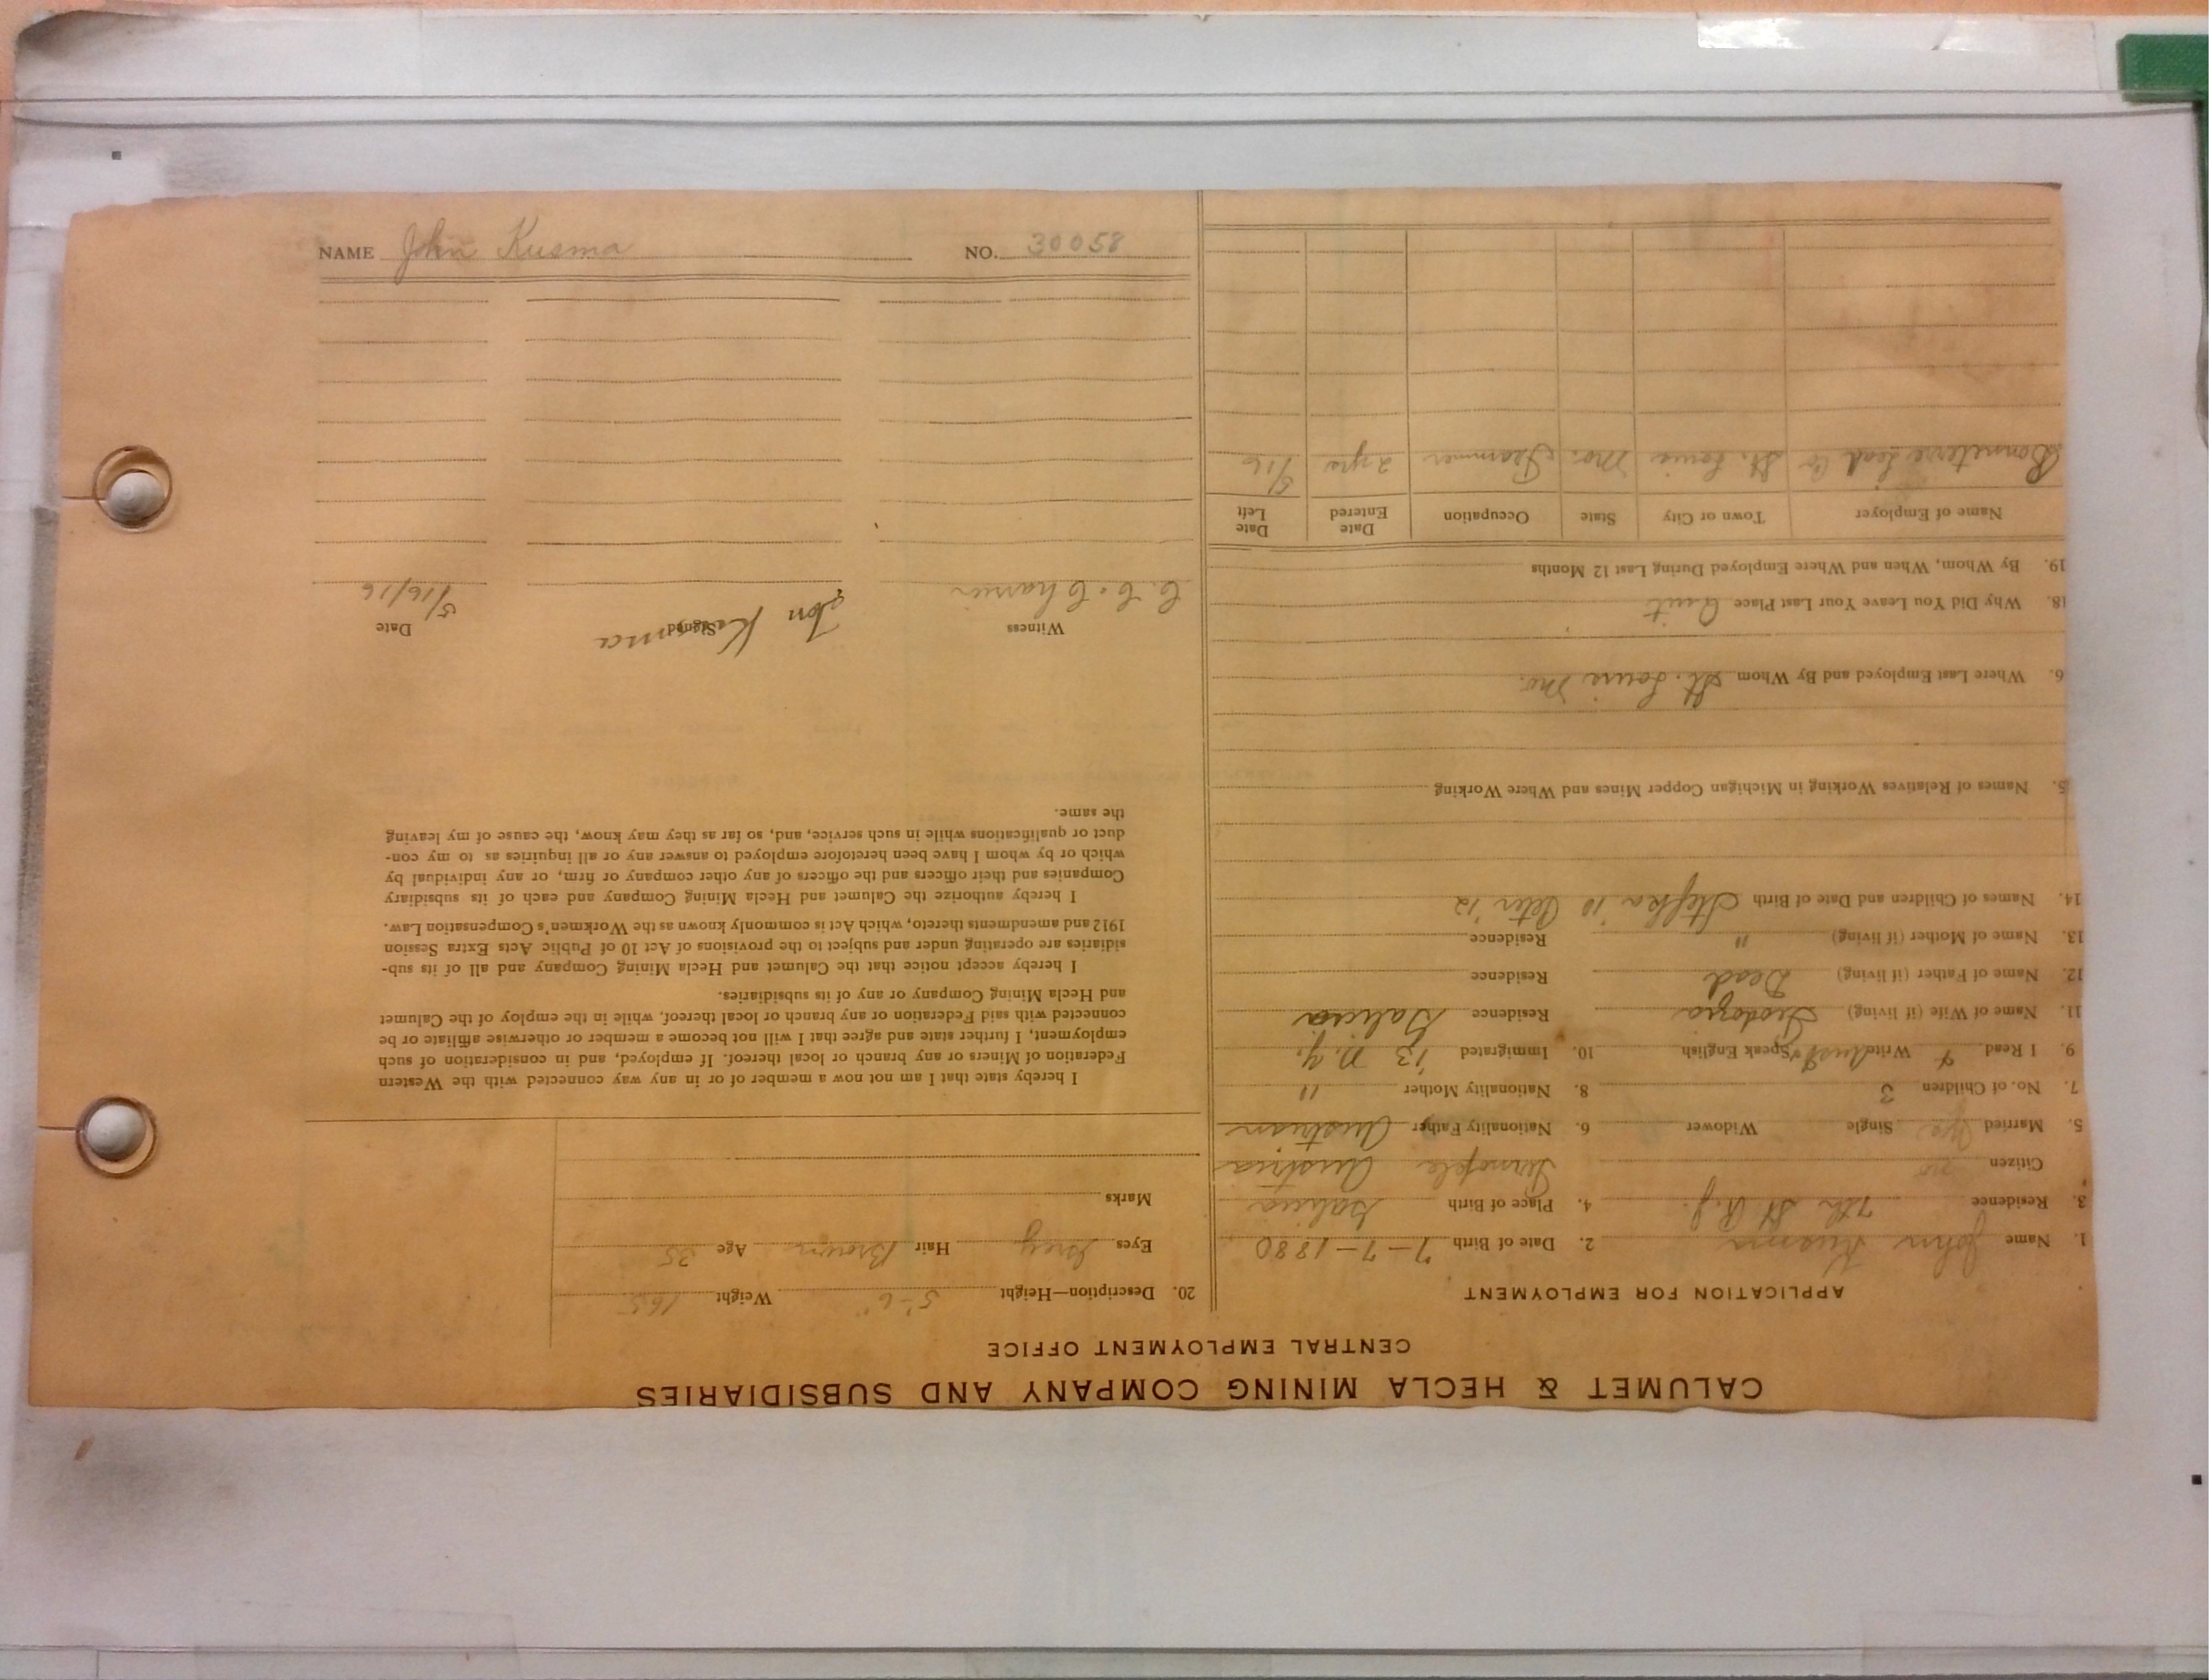 CALUMET & HECLA MINING COMPANY AND SUBSIDIARIES
CENTRAL EMPLOYMENT OFFICE
APPLICATION FOR EMPLOYMENT
1. Name John Kusma 2. Date of Birth 7-7-1880
3. Residence 7th St R.J. 4. Place of Birth Galicia
Citizen no Austria
5. Married Yes Single Widower 6. Nationality Father Austrian
7. No. of Children 3 8. Nationality Mother "
9. I Read Write Speak English 10. Immigrated '13 N.Y.
11. Name of Wife (if living) Residence Galicia
12. Name of Father (if living) Dead Residence
13. Name of Mother (if living) " Residence
14. Names of Children and Date of Birth Stefka '10 Peter '12
5. Names of Relatives Working in Michigan Copper Mines and Where Working
6. Where Last Employed and By Whom St. Louis Mo.
18. Why Did You Leave Your Last Place Quit
19. By Whom, When and Where Employed During Last 12 Months
Name of Employer Town or City State Occupation Date Entered Date Left
Bonneterre Lead Co St. Louis Mo. Trammer 2 yrs 5/16
20. Description—Height 5'-6" Weight 165
Eyes Grey Hair Brown Age 35
Marks
I hereby state that I am not now a member of or in any way connected with the Western
Federation of Miners or any branch or local thereof. If employed, and in consideration of such
employment, I further state and agree that I will not become a member or otherwise affiliate or be
connected with said Federation or any branch or local thereof, while in the employ of the Calumet
and Hecla Mining Company or any of its subsidiaries.
I hereby accept notice that the Calumet and Hecla Mining Company and all of its sub-
sidiaries are operating under and subject to the provisions of Act 10 of Public Acts Extra Session
1912 and amendments thereto, which Act is commonly known as the Workmen's Compensation Law.
I hereby authorize the Calumet and Hecla Mining Company and each of its subsidiary
Companies and their officers and the officers of any other company or firm, or any individual by
which or by whom I have been heretofore employed to answer any or all inquiries as to my con-
duct or qualifications while in such service, and, so far as they may know, the cause of my leaving
the same.
Witness Signed Date
C. C. Kusma 5/16/16
NAME John Kusma NO. 30058